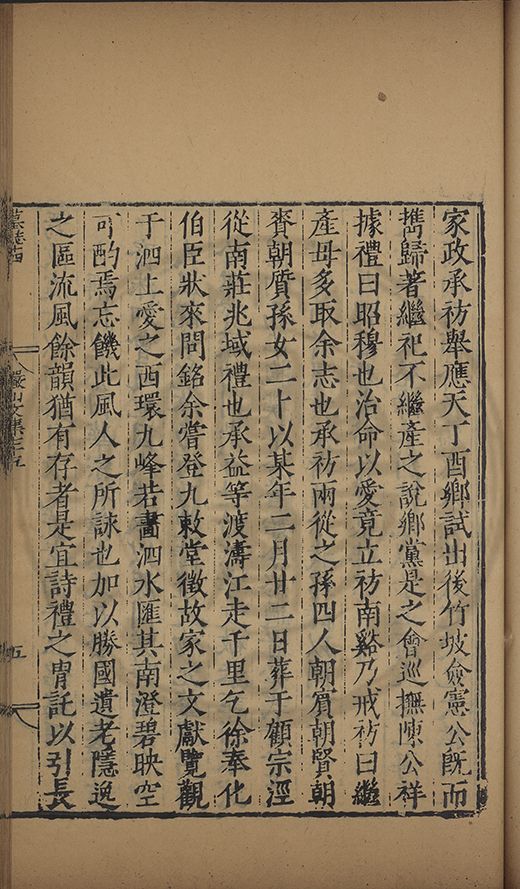 家政承祊舉應天丁酉鄉試出後竹坡僉憲公既而
雋歸著繼祀不繼產之說鄉黨是之會巡撫陳公祥
據禮曰昭穆也治命以愛竟立祊南谿乃戒祊曰繼
產毋多取余志也承祊兩從之孫四人朝賓朝賢朝
賚朝質孫女二十以某年二月廿二日葬于顧宗涇
從南莊兆域禮也承益等渡濤江走千里乞徐奉化
伯臣狀來問銘余嘗登九敕堂徵故家之文獻覽觀
于泗上愛之西環九峰若畫泗水匯其南澄碧映空
可酌焉忘饑此風人之所詠也加以勝國遺老隱逸
之區流風餘韻猶有存者是宜詩禮之胄託以引長
五